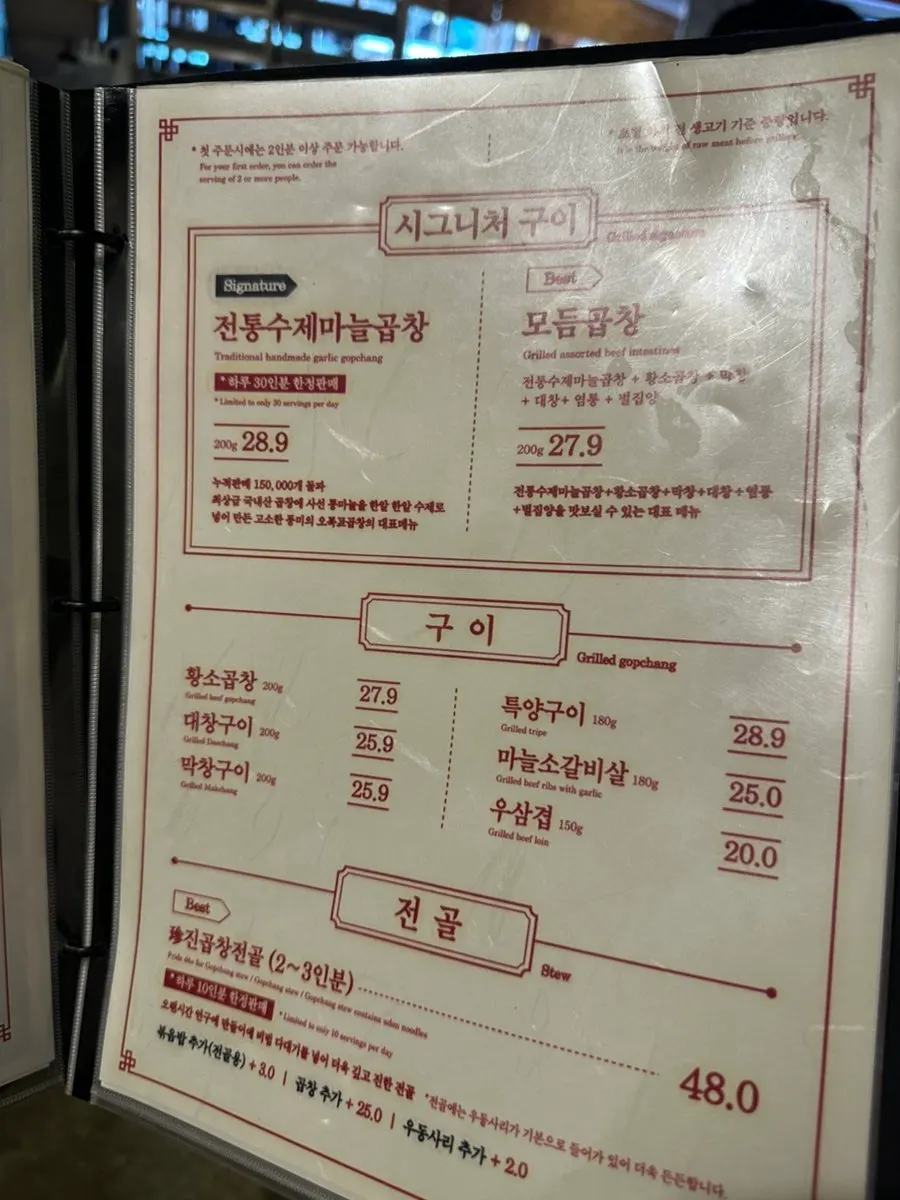 * 첫 주문시에는 2인분 이상 주문 가능합니다.
For your first order, you can order the
serving of 2 or more people.
생고기 기준 중량입니다.
It is the weight of raw meat before grilling.
시그니처 구이
Grilled signature
Signature
전통수제마늘곱창
Traditional handmade garlic gopchang
* 하루 30인분 한정판매
* Limited to only 30 servings per day
200g 28.9
누적판매 150,000개 돌파
최상급 국내산 곱창에 사선 통마늘을 한알 한알 수제로
넣어 만든 고소한 풍미의 오복표곱창의 대표메뉴
Best
모듬곱창
Grilled assorted beef intestines
전통수제마늘곱창 + 황소곱창 + 막창
+ 대창+ 염통 + 벌집양
200g 27.9
전통수제마늘곱창+황소곱창+막창+대창+염통
+벌집양을 맛보실 수 있는 대표 메뉴
구 이
Grilled gopchang
황소곱창 200g 27.9
Grilled beef gopchang
대창구이 200g 25.9
Grilled Daechang
막창구이 200g 25.9
Grilled Makchang
특양구이 180g 28.9
Grilled tripe
마늘소갈비살 180g 25.0
Grilled beef ribs with garlic
우삼겹 150g 20.0
Grilled beef loin
전 골
Stew
Best
珍진곱창전골 (2~3인분) 48.0
for Gopchang stew / Gopchang stew / Gopchang stew contains udon noodles
*하루 10인분 한정판매
*Limited to only 10 servings per day
오랜시간 연구에 만들어낸 비법 다대기를 넣어 더욱 깊고 진한 전골
*전골에는 우동사리가 기본으로 들어가 있어 더욱 든든합니다.
볶음밥 추가(전골용) + 3.0 | 곱창 추가 + 25.0 | 우동사리 추가 + 2.0